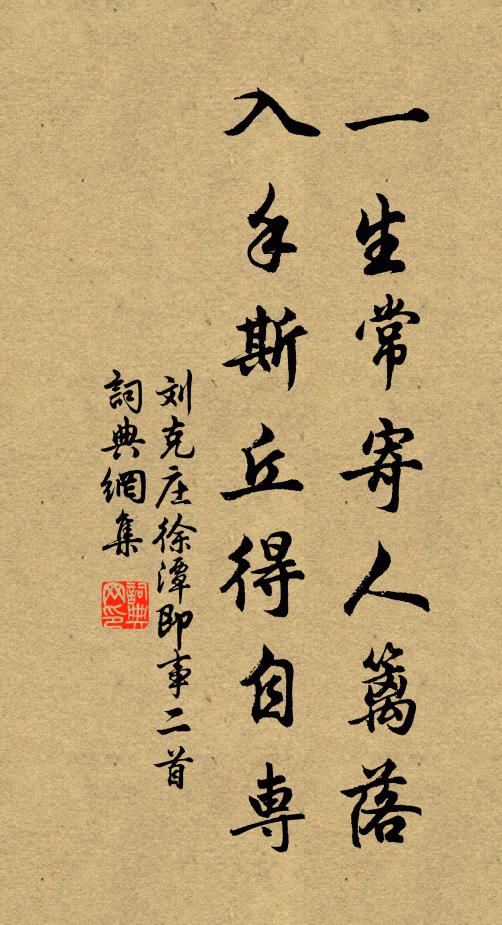 一生常寄人篱落
入手斯丘得自専
刘克庄徐潭即事二首
詞典網集
詞典网印